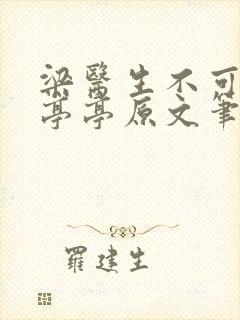 梁醫生不可
亭亭原文筆
羅建生